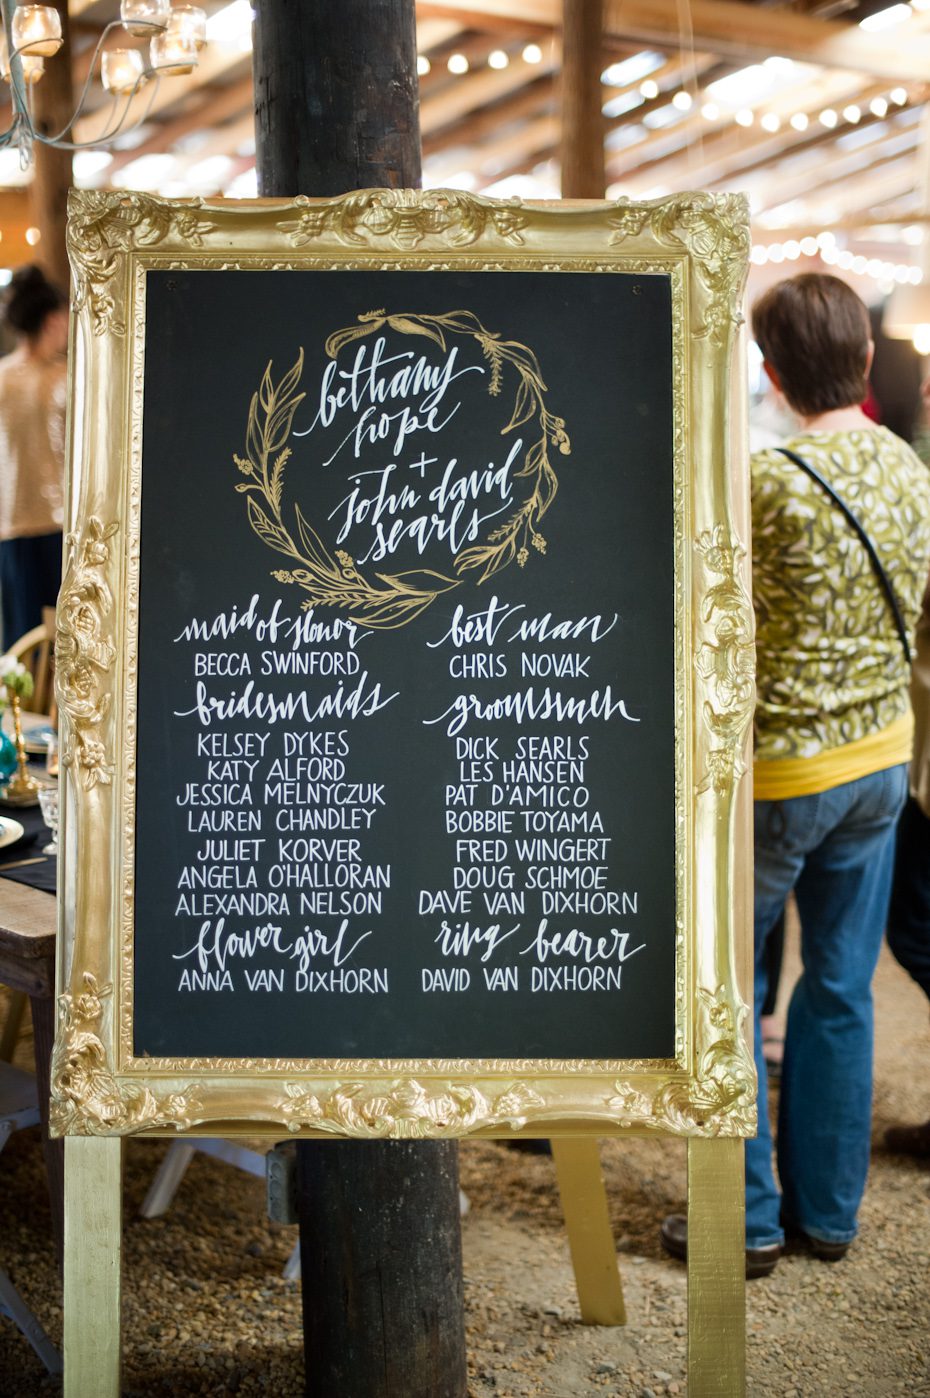 bethany
hope
+
john david
searls
maid of honor
BECCA SWINFORD
bridesmaids
KELSEY DYKES
KATY ALFORD
JESSICA MELNYCZUK
LAUREN CHANDLEY
JULIET KORVER
ANGELA O'HALLORAN
ALEXANDRA NELSON
flower girl
ANNA VAN DIXHORN
best man
CHRIS NOVAK
groomsmen
DICK SEARLS
LES HANSEN
PAT D'AMICO
BOBBIE TOYAMA
FRED WINGERT
DOUG SCHMOE
DAVE VAN DIXHORN
ring bearer
DAVID VAN DIXHORN